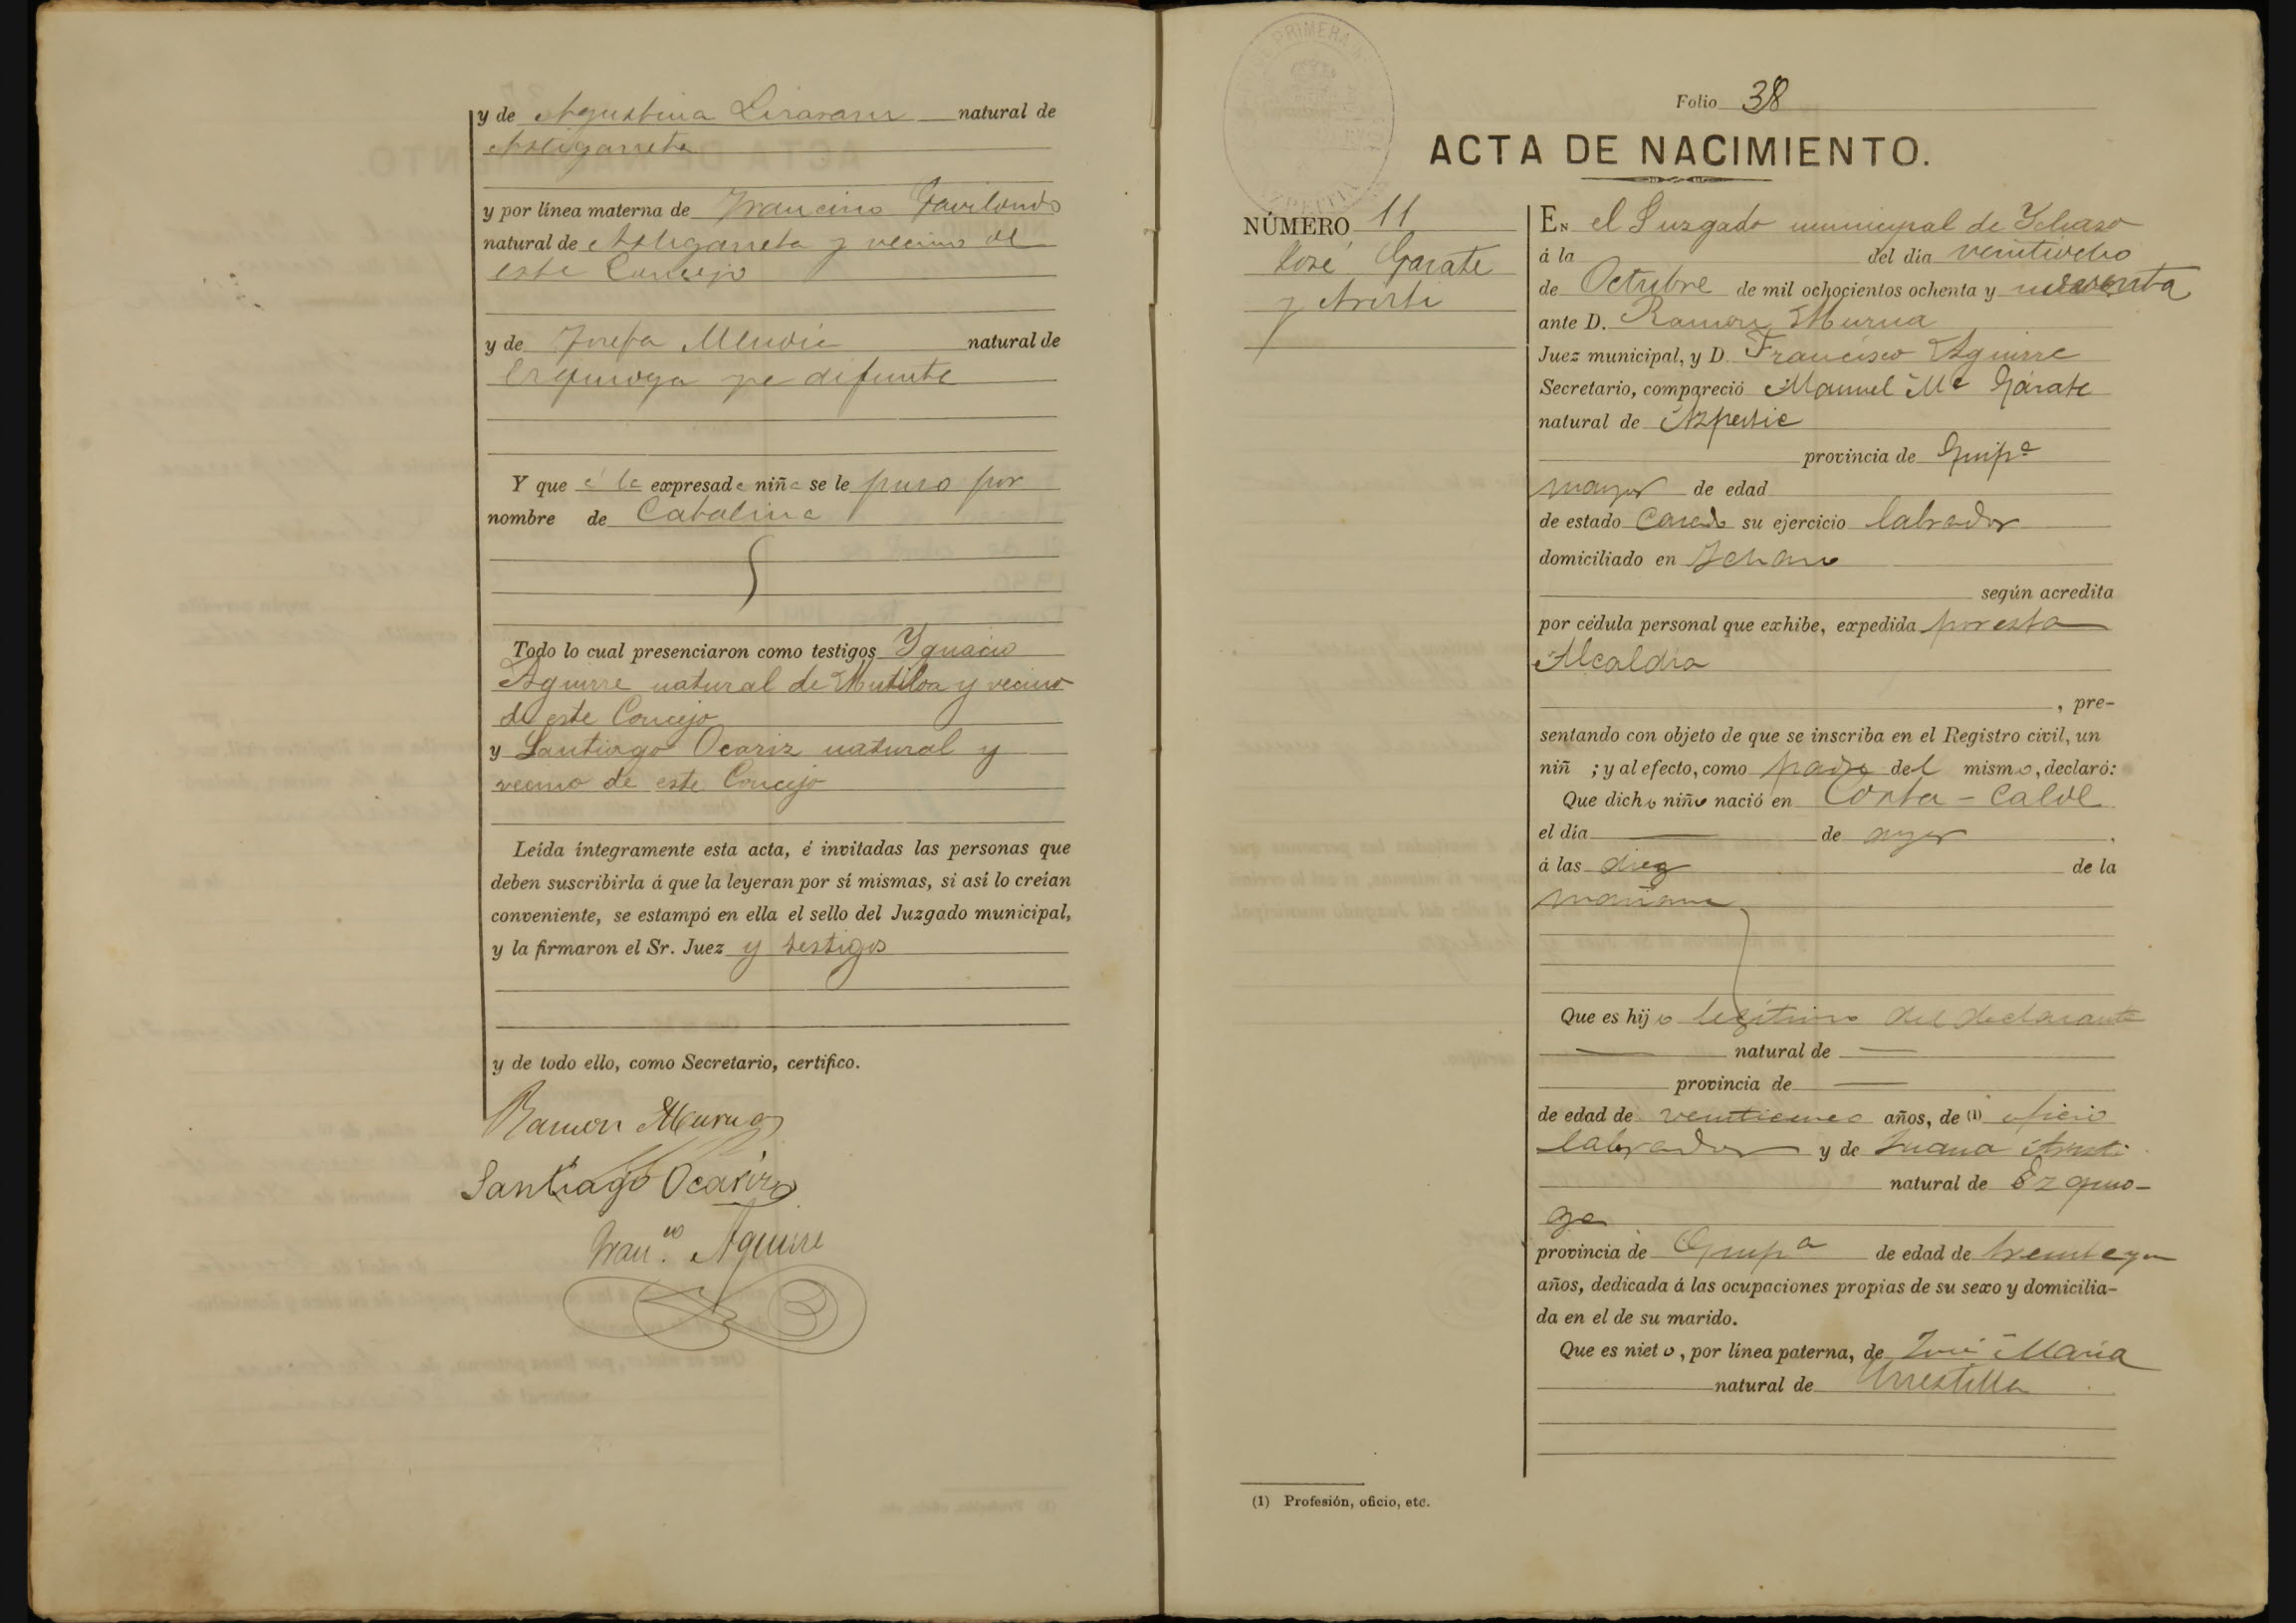 y de Agustina natural de
Astigarreta
y por línea materna de Francisco
natural de Astigarreta y vecino de
este Concejo
y de Josefa natural de
Ezquioga ya difunta
Y que á la expresada niña se le puso por
nombre de Catalina
Todo lo cual presenciaron como testigos Ygnacio
Aguirre natural de Mutiloa y vecino
de este Concejo
y Santiago Ocariz natural y
vecino de este Concejo
Leída íntegramente esta acta, é invitadas las personas que
deben suscribirla á que la leyeran por sí mismas, si así lo creían
conveniente, se estampó en ella el sello del Juzgado municipal,
y la firmaron el Sr. Juez y testigos
y de todo ello, como Secretario, certifico.
Ramon Murua
Santiago Ocariz
Fran.co Aguirre
Folio 38
ACTA DE NACIMIENTO.
NÚMERO 11
José Garate
y Aristi
EN el Juzgado municipal de Ychaso
á la del día veintiocho
de Octubre de mil ochocientos ochenta y
ante D. Ramon Murua
Juez municipal, y D. Francisco Aguirre
Secretario, compareció Manuel Ma Gárate
natural de Azpeitia
provincia de Guipa
mayor de edad
de estado casado su ejercicio labrador
domiciliado en Ychaso
según acredita
por cédula personal que exhibe, expedida por esta
Alcaldia
, pre-
sentando con objeto de que se inscriba en el Registro civil, un
niñ ; y al efecto, como padre del mismo, declaró:
Que dicho niño nació en
el día — de ayer
á las diez de la
mañana
Que es hijo legitimo del declarante
— natural de —
provincia de —
de edad de veinticinco años, de (1) oficio
labrador y de Juana Aristi
natural de Ezquio-
ga
provincia de Guipa de edad de
años, dedicada á las ocupaciones propias de su sexo y domicilia-
da en el de su marido.
Que es nieto, por línea paterna, de José Maria
natural de Urrestilla
(1) Profesión, oficio, etc.